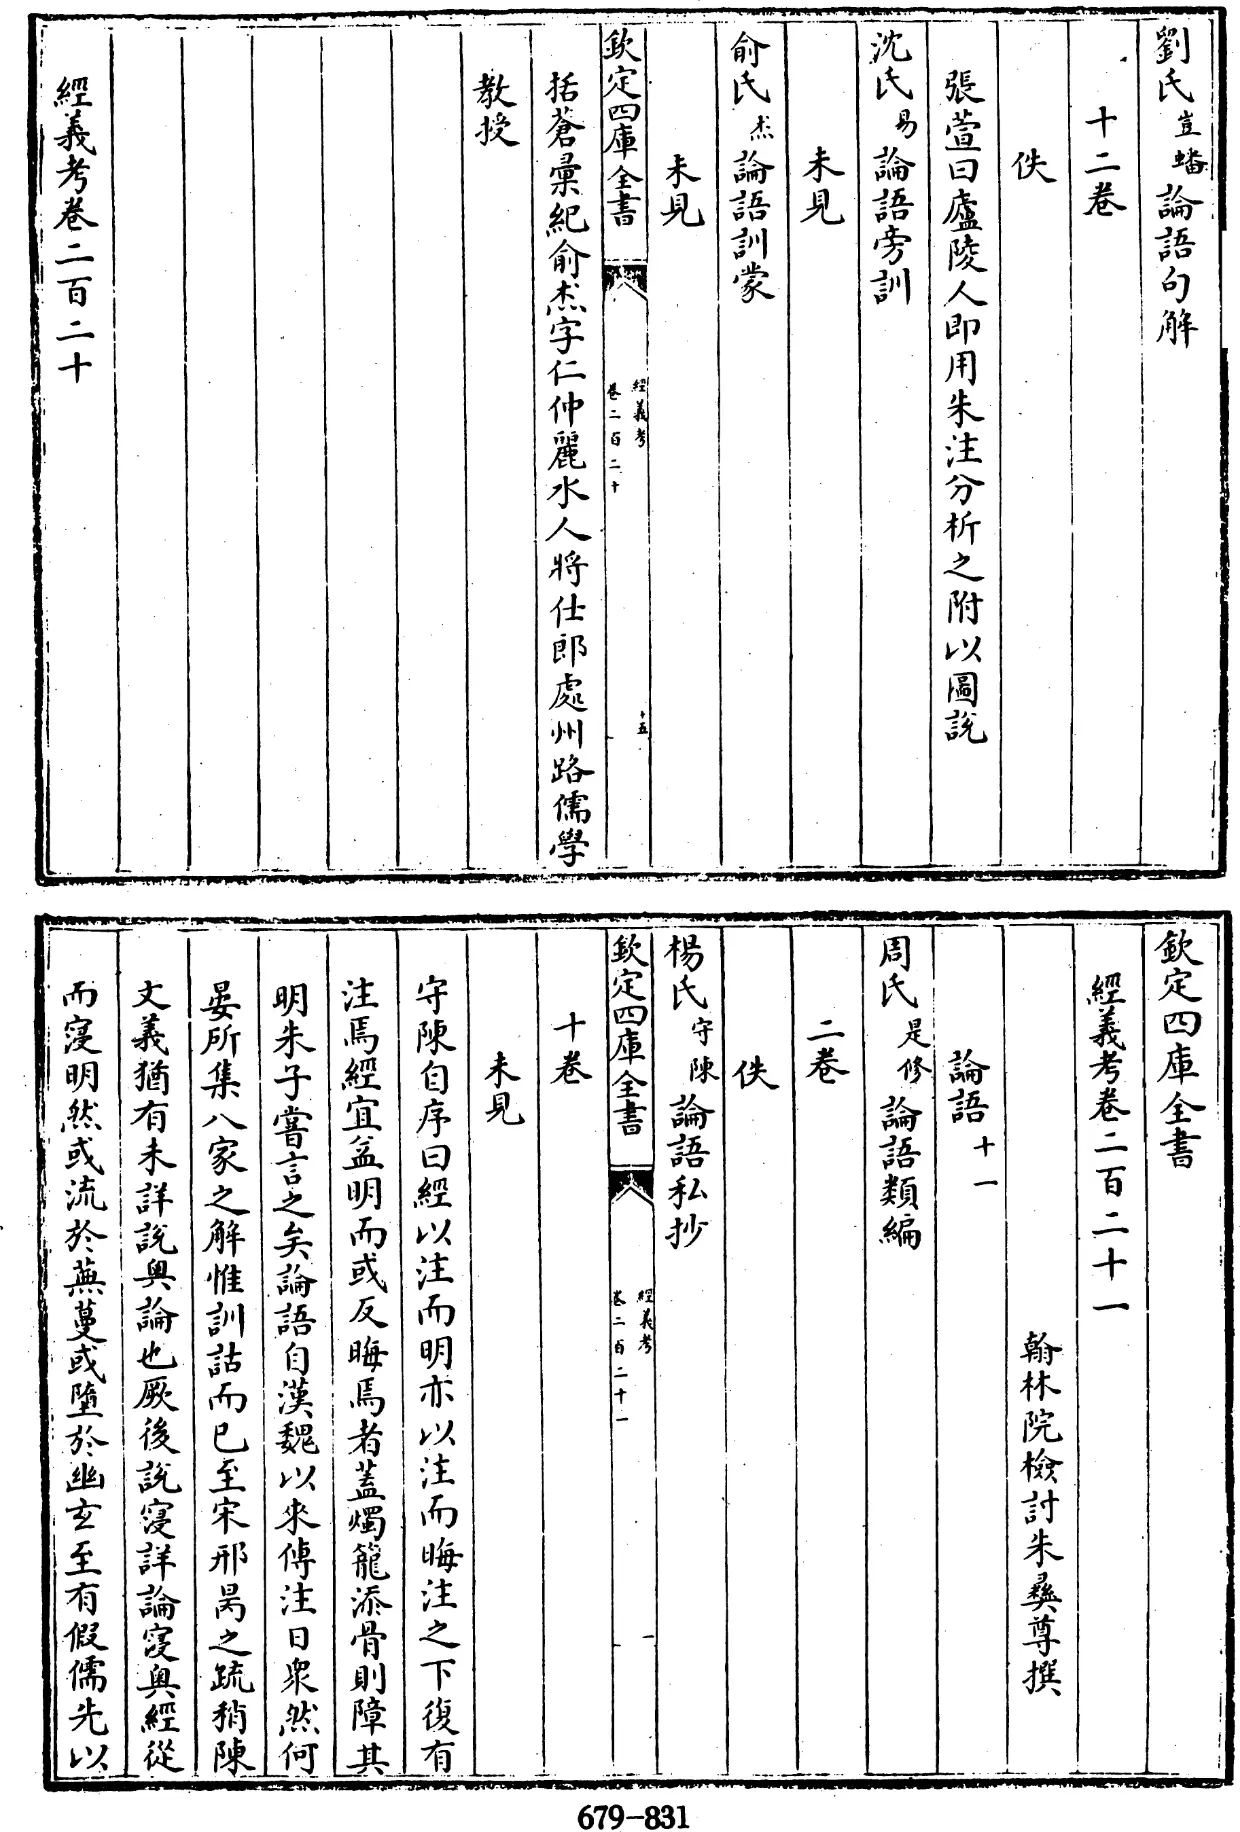 劉氏豈蟠論語句解
十二卷
佚
張萱曰廬陵人即用朱注分析之附以圖說
沈氏易論語旁訓
未見
俞氏杰論語訓蒙
未見
欽定四庫全書
經義考
卷二百二十
十五
括蒼彙紀俞杰字仁仲麗水人將仕郎處州路儒學
教授
經義考卷二百二十
欽定四庫全書
經義考卷二百二十一
翰林院檢討朱彝尊撰
論語十一
周氏是修論語類編
二卷
佚
楊氏守陳論語私抄
欽定四庫全書
經義考
卷二百二十一
一
十卷
未見
守陳自序曰經以注而明亦以注而晦注之下復有
注焉經宜益明而或反晦焉者蓋燭籠添骨則障其
明朱子嘗言之矣論語自漢魏以來傳注日衆然何
晏所集八家之解惟訓詁而已至宋邢昺之疏稍陳
文義猶有未詳說奥論也厥後說寖詳論寖奥經從
而寖明然或流於蕪蔓或墮於幽玄至有假儒先以
679-831